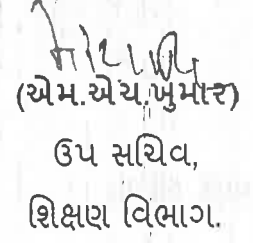 (એમ.એચ.ખુમાર)
ઉપ સચિવ,
શિક્ષણ વિભાગ.